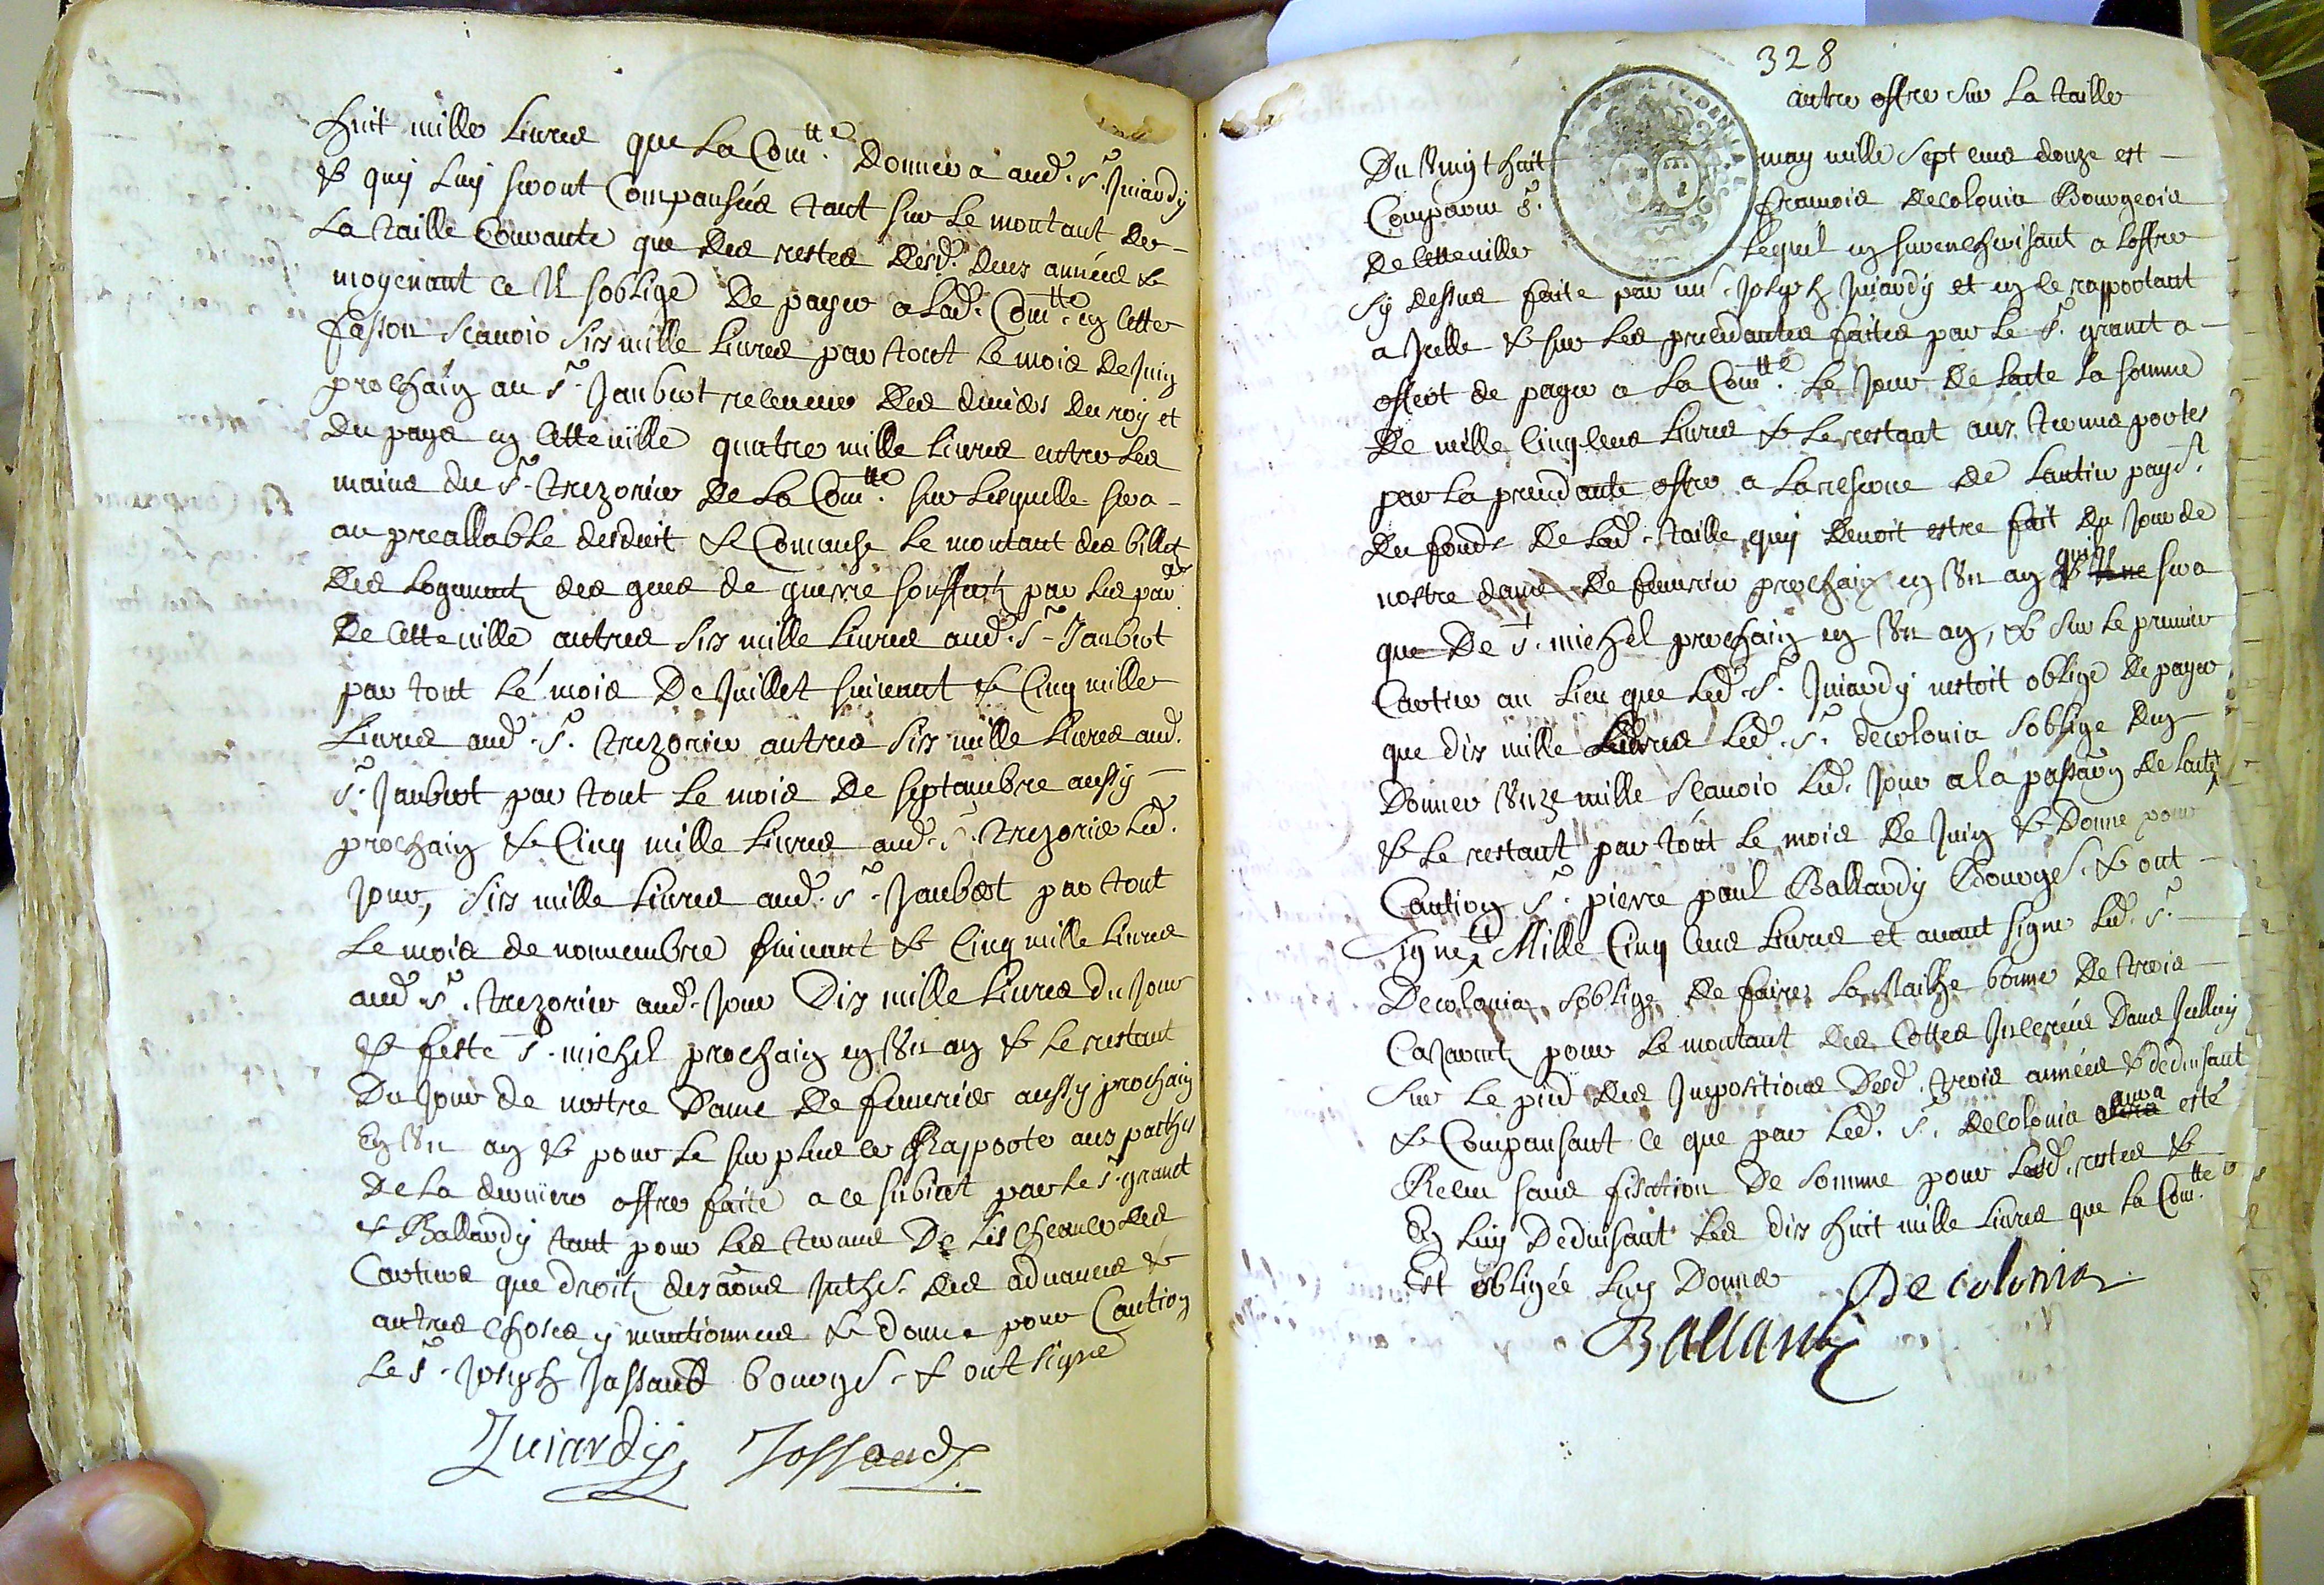 huit mille livres que la Com.tte donnera aud. Sr. Juiardy
& quy luy seront Compansées tant sur le montant de
la taille Courante que des restes desd. deux années &
moyenant ce Il soblige de payer a lad. Com.tte en cette
fasson scavoir six mille livres par tout le mois de Juin
prochain au Sr. Jaubert receveur des deniers du roy et
du pays en cette ville quatre mille livres entre les
mains du Sr. trezorier de la Com.tte sur lesquelle sera
au preallable desduit & Comansé le montant des billet
des logement des gens de guerre souffert par les par.ers
de cette ville autres six mille livres aud. Sr. Jaubert
par tout le mois de Juillet suivant & cinq mille
livres aud. Sr. trezorier autres six mille livres aud.
Sr. Jaubert par tout le mois de septambre aussy
prochain & cinq mille livres aud. Sr. trezorier led.
jour, six mille livres aud. Sr. Jaubert par tout
le mois de novembre suivant & cinq mille livres
aud. Sr. trezorier aud. Jour Dix mille livres du jour
& feste St. michel prochain en un an & le restant
du jour de nostre Dame de fevrier aussy prochain
en un an & pour le surplus ce Rapporte aux pactes
de la derniere offre faite a ce subiect par le Sr. granet
& Ballardy tant pour les termes de des
Cartiers que droit des des advances &
autres choses y mantionnees & donne pour Caution
le Sr. Joseph Jassaud bourgs. & ont signé
Juiardy Jossaud
328
autre offre sur la taille
Du vingt huit may mille sept cens douze est
Comparu Sr. francois Decolonia Bourgeois
de cette ville lequel en surencherisant a loffre
sy dessus faite par me. Joseph Juiardy et en ce rapportant
a Icelle & sur les precedantes faites par le Sr. granet a
offert de payer a la Com.tte le jour de lacte la somme
de mille cinq cens livres & le restant aux termes portes
par la precedante offre a la reserve de lantier payt.
du fonds de lad. taille quy devoit estre fait du jour de
nostre dame de fevrier prochain en un an quil ne sera
que de St. michel prochain en un an, & sur le premier
Cartier au lieu que led. Sr. Juiardy nestoit obligé de payer
que dix mille livres led. Sr. decolonia soblige den
donner unze mille scavoir led. jour a la passaon de lacte
& le restant par tout le mois de Juin & Donne pour
Caution Sr. pierre paul Ballardy Bourgs. & ont
signe Mille cinq cens livres et avant signer led. Sr.
Decolonia soblige de faire la taille bonne de trois
pour le montant des Cottes Incerées dans Icelluy
sur le pied des Impositions desd. trois années & deduisant
& Compansant ce que par led. Sr. Decolonia aura esté
Receu sans fixation de somme pour lesd. restes &
en luy Deduisant les dix huit mille livres que la Com.tte
est obligée luy Donner
De colonia
Ballardy